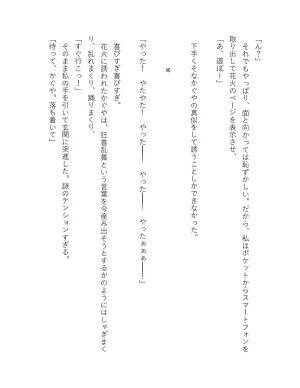 「ん？」
　それでもやっぱり、面と向かっては恥ずかしい。だから、私はポケットからスマートフォンを
取り出して花火のページを表示させ、
「あ、遊ぼー」
　下手くそなかぐやの真似をして誘うことしかできなかった。
「やった！　やたやた！　やった――！　やった――！　やったぁぁぁ――！」
　喜びすぎ喜びすぎ。
　花火に誘われたかぐやは、狂喜乱舞という言葉を今産み出そうとするかのようにはしゃぎまく
り、乱れまくり、踊りまくり、
「すぐ行こっ！」
　そのまま私の手を引いて玄関に突進した。謎のテンションすぎる。
「待って、かぐや。落ち着いて」